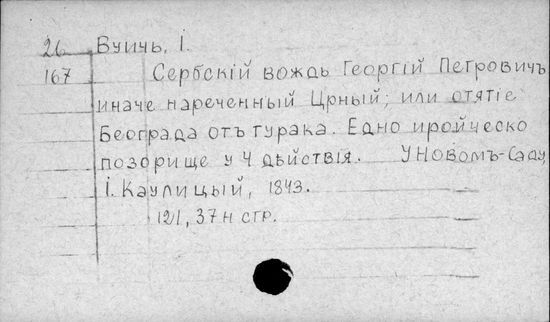 26 Вуичь, І.
167 Сербскій вождь Георгій Петровичъ
иначе нареченный Црный; или отятіе
Београда отъ турака. Едно иройческо
позорище у 4 дѣйствія. У Новомъ-Саду,
І. Каулицый, 1843.
121, 37н стр.